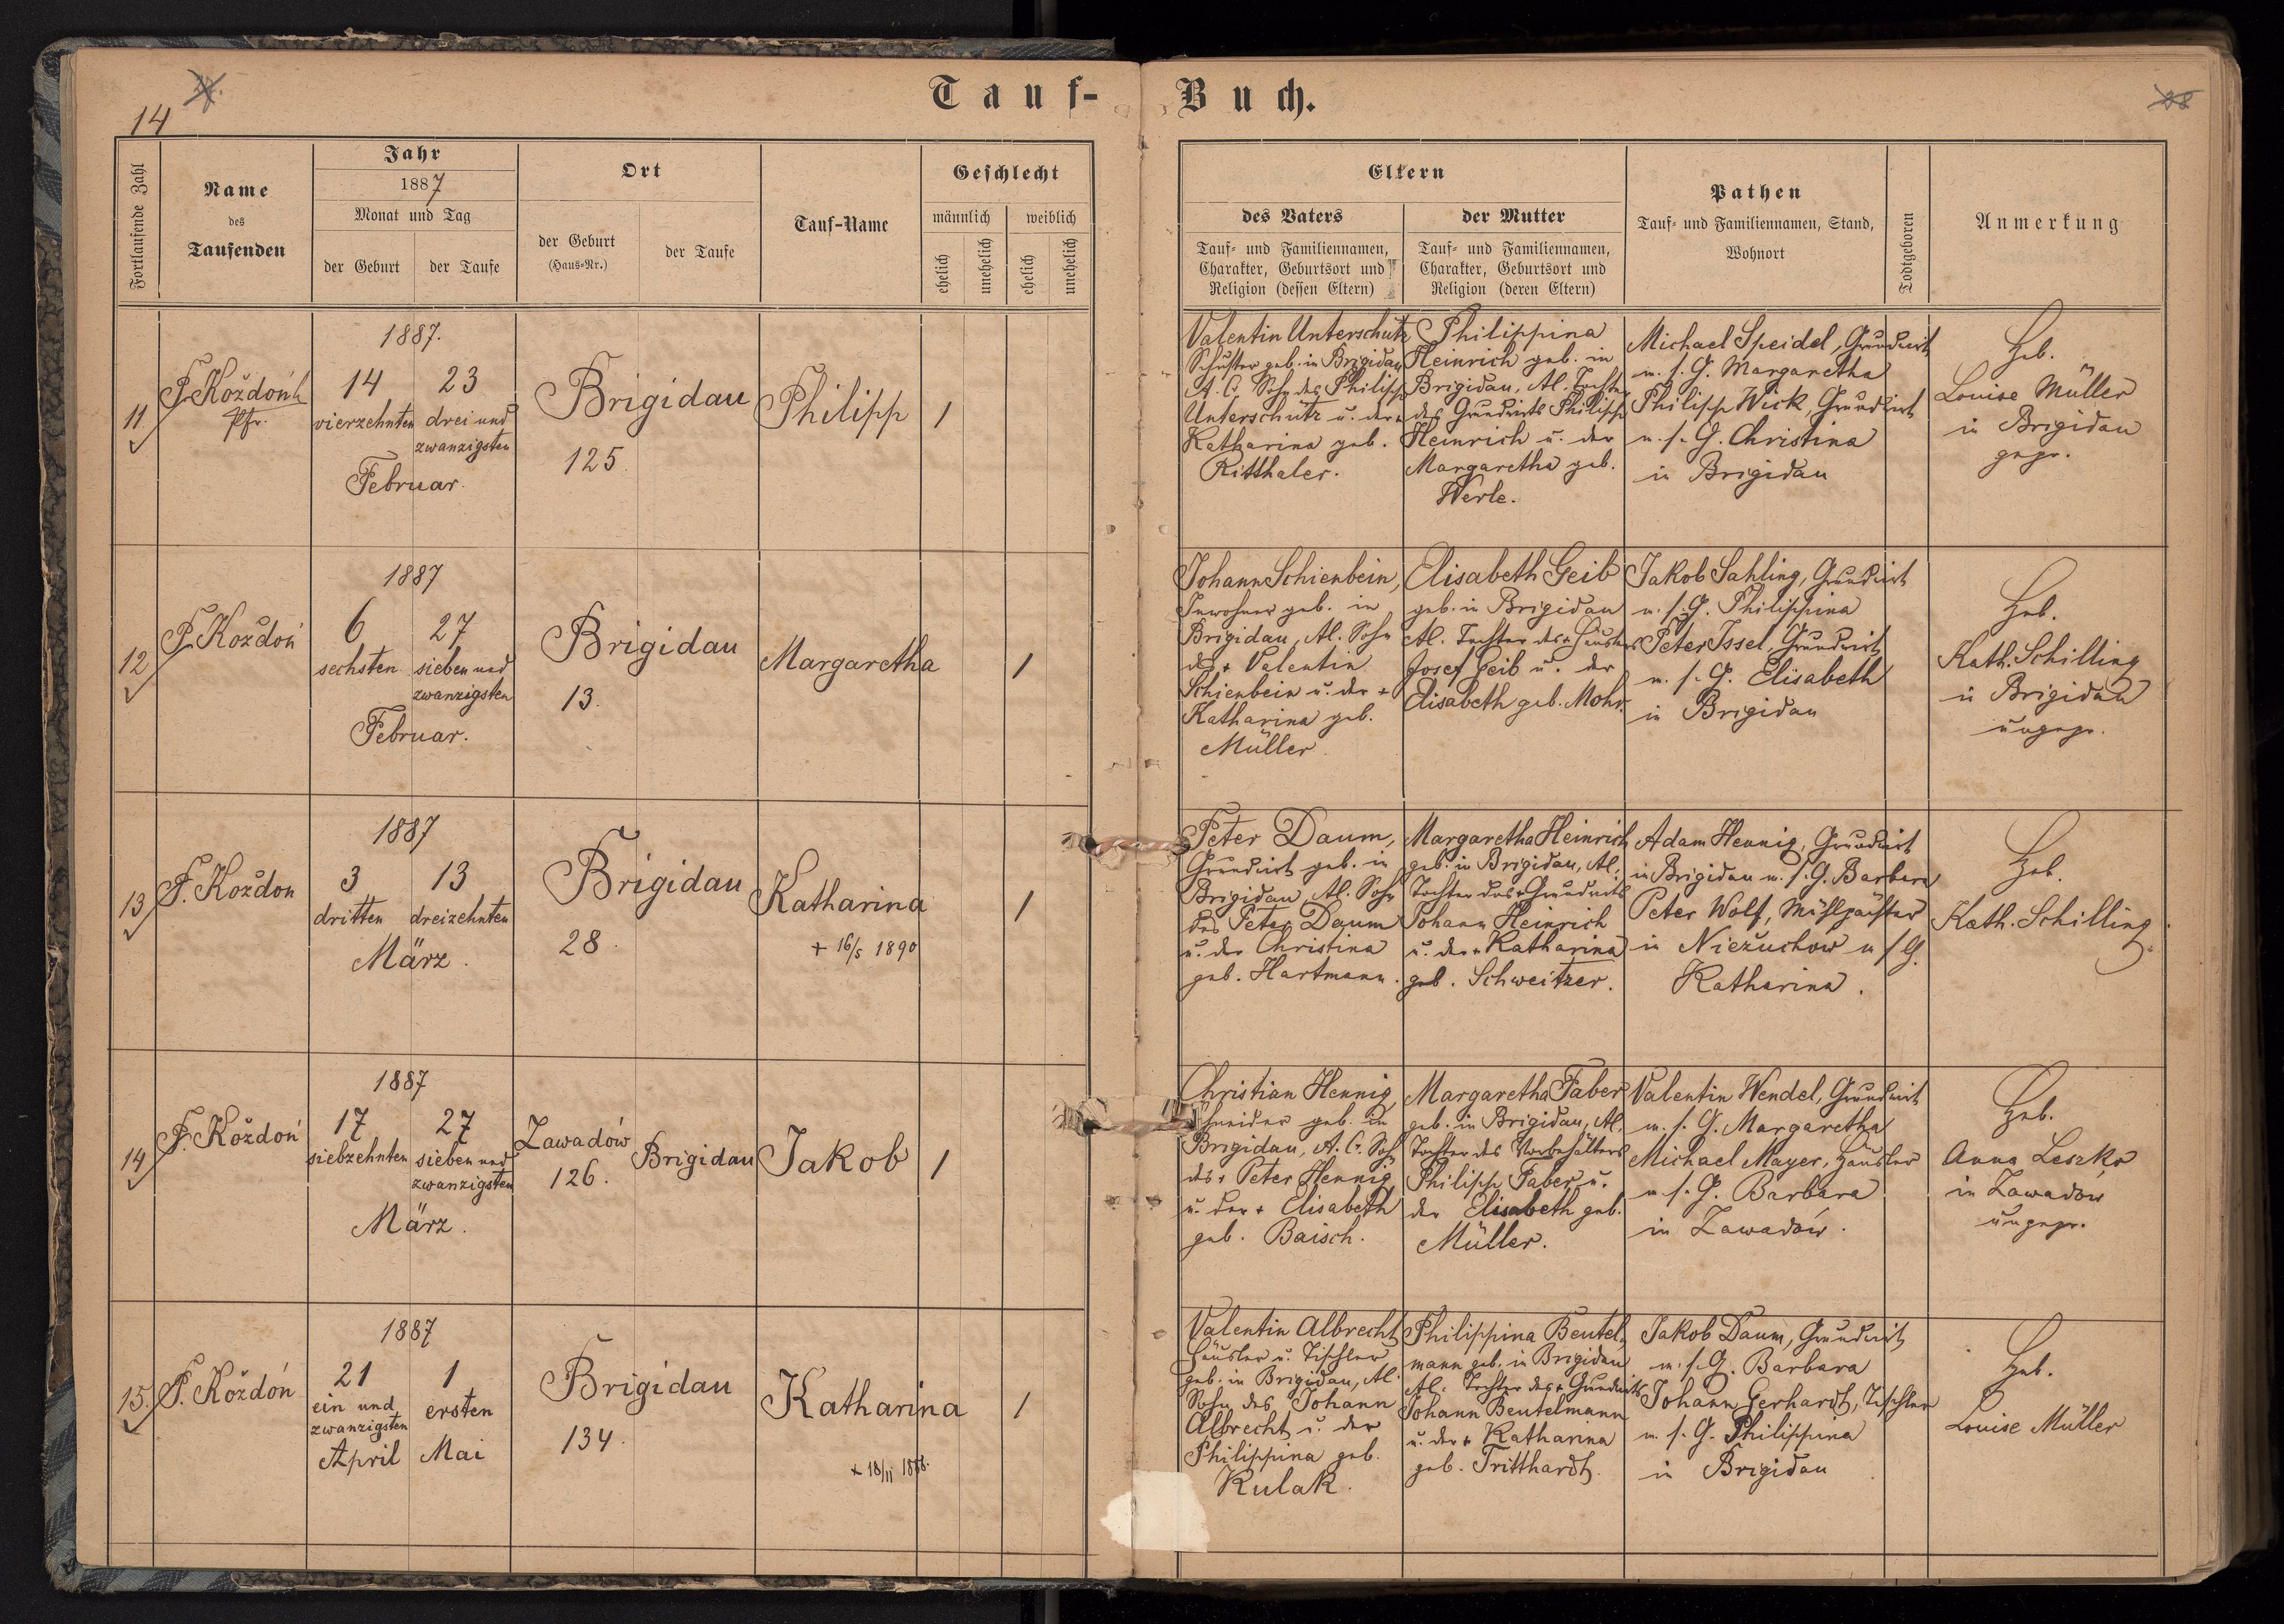 14
Tauf-Buch.
Fortlaufende Zahl
Name
des
Taufenden
Jahr
1887
Monat und Tag
der Geburt
der Taufe
Ort
der Geburt
(Haus-Nr.)
der Taufe
Tauf-Name
Geschlecht
männlich
weiblich
ehelich
unehelich
ehelich
unehelich
Eltern
des Vaters
Tauf- und Familiennamen,
Charakter, Geburtsort und
Religion (dessen Eltern)
der Mutter
Tauf- und Familiennamen,
Charakter, Geburtsort und
Religion (deren Eltern)
Pathen
Tauf- und Familiennamen, Stand,
Wohnort
Todtgeboren
Anmerkung
11
Pfr.
1887.
14
vierzehnten
23
drei und
zwanzigsten
Februar.
Brigidau
125.
Philipp
1
Valentin Unterschütz
Schuster geb. in Brigidau
A. C. Sohn des Philipp
Unterschütz u. der +
Katharina geb.
Ritthaler.
Philippina
Heinrich geb. in
Brigidau, Al. Tochter
des Grundwirts Philipp
Heinrich u. der
Margaretha geb.
Werle.
Michael Speidel, Grundwirt
u. s. G. Margaretha
Philipp Wick, Grundwirt
u. s. G. Christina
in Brigidau
Heb.
Louise Müller
in Brigidau
gepr.
12
P. Koždoń
1887
6
sechsten
27
sieben und
zwanzigsten
Februar.
Brigidau
13.
Margaretha
1
Johann Schienbein,
Inwohner geb. in
Brigidau, Al. Sohn
des + Valentin
Schienbein u. der +
Katharina geb.
Müller.
Elisabeth Geib
geb. in Brigidau
Al. Tochter des + Häuslers
Josef Geib u. der
Elisabeth geb. Mohr.
Jakob Sahling, Grundwirt
u. s. G. Philippina
Peter Issel, Grundwirt
u. s. G. Elisabeth
in Brigidau
Heb.
Kath. Schilling
in Brigidau
ungepr.
13
P. Koždon
1887
3
dritten
13
dreizehnten
März.
Brigidau
28.
Katharina
+ 16/5 1890
1
Peter Daum,
Grundwirt geb. in
Brigidau, Al. Sohn
des Peter Daum
u. der Christina
geb. Hartmann.
Margaretha Heinrich
geb. in Brigidau, Al.
Tochter des + Grundwirts
Johann Heinrich
u. der + Katharina
geb. Schweitzer.
Adam Hennig, Grundwirt
in Brigidau u. s. G. Barbara
Peter Wolf, Mühlpächter
in Niežuchow u s G.
Katharina.
Heb.
Kath. Schilling.
14
P. Koždoń
1887
17
siebzehnten
27
sieben und
zwanzigsten
März.
Zawadów
126.
Brigidau
Jakob
1
Christian Hennig
Schneider geb. in
Brigidau, A. C. Sohn
des + Peter Hennig
u. der + Elisabeth
geb. Baisch.
Margaretha Faber
geb. in Brigidau, Al.
Tochter des Vorbehälters
Philipp Faber u.
der Elisabeth geb.
Müller.
Valentin Wendel, Grundwirt
u. s. G. Margaretha
Michael Mayer, Häusler
u s. G. Barbara
in Zawadów.
Heb.
Anna Leszko
in Zawadów
ungepr.
15.
P. Koždoń
1887
21
ein und
zwanzigsten
April
1
ersten
Mai
Brigidau
134.
Katharina
+ 18/11 1888.
1
Valentin Albrecht
Häusler u. Tischler
geb. in Brigidau, Al.
Sohn des Johann
Albrecht u. der
Philippina geb.
Kulak.
Philippina Beutel-
mann geb. in Brigidau
Al. Tochter des + Grundwirts
Johann Beutelmann
u. der + Katharina
geb. Tritthardt.
Jakob Daum, Grundwirt
u. s. G. Barbara
Johann Gerhardt, Tischler
u. s. G. Philippina
in Brigidau
Heb.
Louise Müller